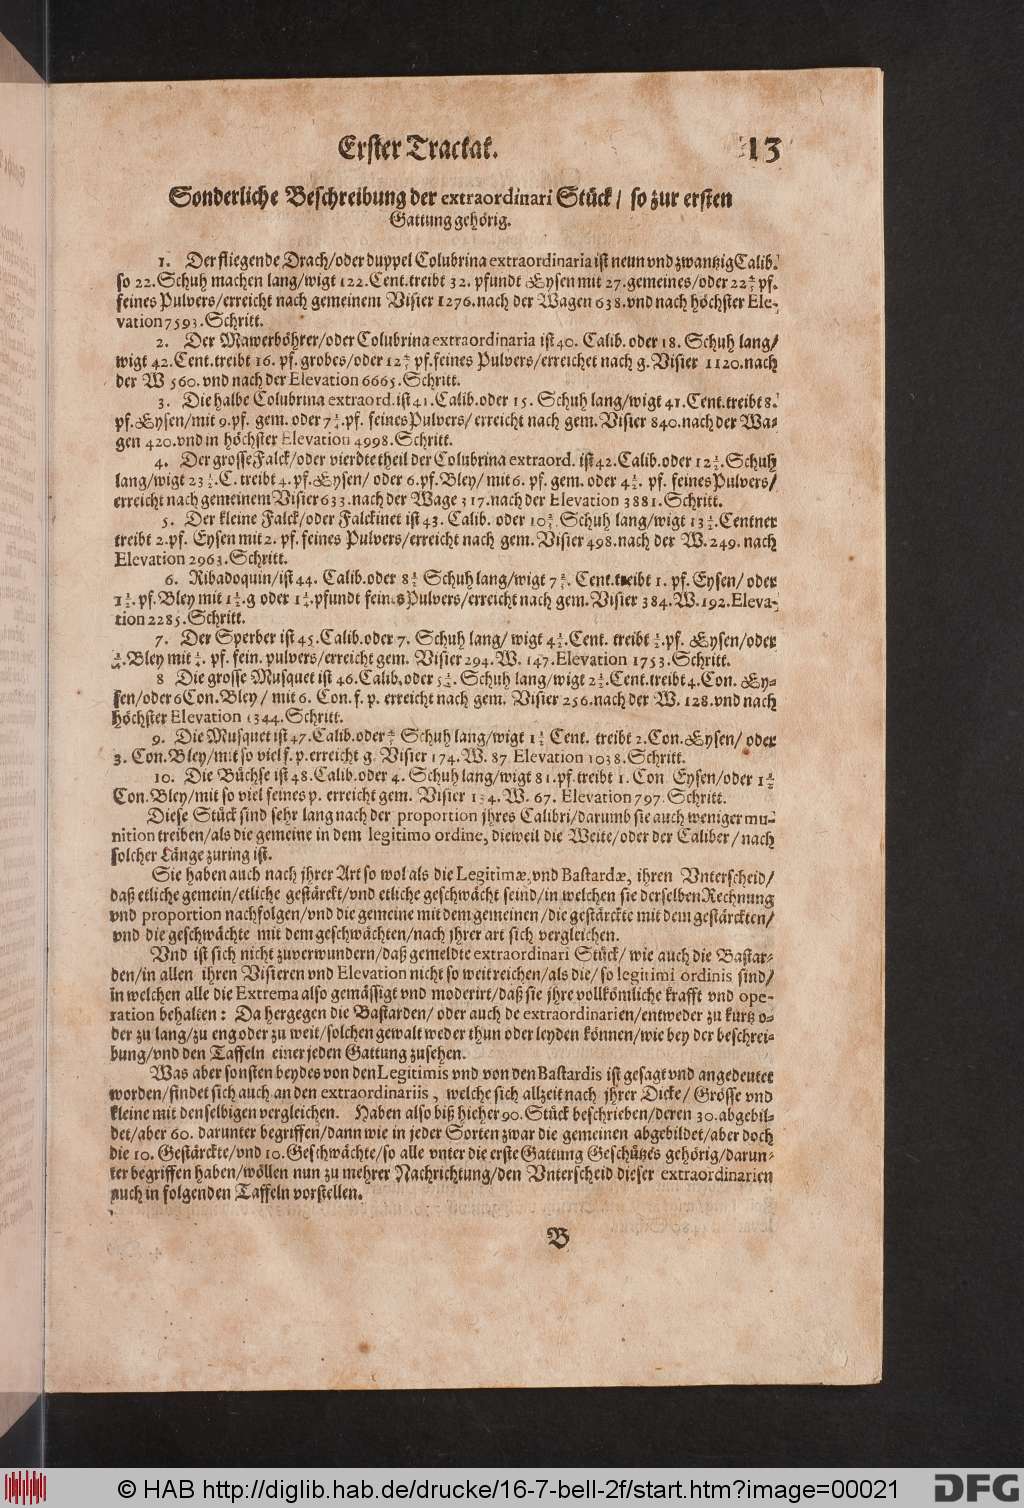 Erster Tractat. 13
Sonderliche Beschreibung der extraordinari Stück/ so zur ersten
Gattung gehörig.
1. Der fliegende Drach/oder duppel Colubrina extraordinaria ist neun vnd zwantzig Calib.
so 22. Schuh machen lang/wigt 122. Cent. treibt 32. pfundt Eysen mit 27. gemeines/oder 22 pf.
feines Pulvers/erreicht nach gemeinem Visier 1276. nach der Wagen 638. vnd nach höchster Ele-
vation 7593. Schritt.
2. Der Mawerböhrer/oder Colubrina extraordinaria ist 40. Calib. oder 18. Schuh lang/
wigt 42. Cent. treibt 16. pf. grobes/oder 12 pf. feines Pulvers/erreichet nach g. Visier 1120. nach
der W 560. vnd nach der Elevation 6665. Schritt.
3. Die halbe Colubrina extraord. ist 41. Calib. oder 15. Schuh lang/wigt 41. Cent. treibt 8.
pf. Eysen/mit 9. pf. gem. oder 7 pf. feines Pulvers/ erreicht nach gem. Visier 840. nach der Wa-
gen 420. vnd in höchster Elevation 4998. Schritt.
4. Der grosse Falck/oder vierdte theil der Colubrina extraord. ist 42. Calib. oder 12 ½. Schuh
lang/wigt 23 C. treibt 4. pf. Eysen/ oder 6. pf. Bley/ mit 6. pf. gem. oder 4 pf. feines Pulvers/
erreicht nach gemeinem Visier 633. nach der Wage 317. nach der Elevation 3881. Schritt.
5. Der kleine Falck/oder Falckinet ist 43. Calib. oder 10 Schuh lang/wigt 13 ½. Centner
treibt 2. pf. Eysen mit 2. pf. feines Pulvers/erreicht nach gem. Visier 498. nach der W. 249. nach
Elevation 2963. Schritt.
6. Ribadoquin/ist 44. Calib. oder 8 Schuh lang/wigt 7 Cent. treibt 1. pf. Eysen/ oder
1 ½. pf. Bley mit 1 g oder 1 pfundt feines Pulvers/erreicht nach gem. Visier 384. W. 192. Eleva-
tion 2285. Schritt.
7. Der Sperber ist 45. Calib. oder 7. Schuh lang/ wigt 4 ½. Cent. treibt ½. pf. Eysen/oder
¾. Bley mit pf. fein. pulvers/erreicht gem. Visier 294. W. 147. Elevation 1753. Schritt.
8 Die grosse Musquet ist 46. Calib. oder 5 Schuh lang/wigt 2 ½. Cent. treibt 4. Con. Ey-
sen/oder 6 Con. Bley/ mit 6. Con. f. p. erreicht nach gem. Visier 256. nach der W. 128. vnd nach
höchster Elevation 1344. Schritt.
9. Die Musquet ist 47. Calib. oder Schuh lang/wigt 1 Cent. treibt 2. Con. Eysen/ oder
3. Con. Bley/mit so viel f. p. erreicht g. Visier 174. W. 87 Elevation 1038. Schritt.
10. Die Büchse ist 48. Calib. oder 4. Schuh lang/wigt 81. pf. treibt 1. Con Eysen/oder 1 ½
Con. Bley/mit so viel feines p. erreicht gem. Visier 134. W. 67. Elevation 797. Schritt.
Diese Stück sind sehr lang nach der proportion jhres Calibri/darumb sie auch weniger mu-
nition treiben/als die gemeine in dem legitimo ordine, dieweil die Weite/oder der Caliber/ nach
solcher Länge zuring ist.
Sie haben auch nach jhrer Art so wol als die Legitimæ, vnd Bastardæ, ihren Vnterscheid/
daß etliche gemein/etliche gestärckt/vnd etliche geschwächt seind/in welchen sie derselben Rechnung
vnd proportion nachfolgen/vnd die gemeine mit dem gemeinen/die gestärckte mit dem gestärckten/
vnd die geschwächte mit dem geschwächten/nach jhrer art sich vergleichen.
Vnd ist sich nicht zuverwundern/daß gemeldte extraordinari Stück/ wie auch die Bastar-
den/in allen ihren Visieren vnd Elevation nicht so weit reichen/als die/ so legitimi ordinis sind/
in welchen alle die Extrema also gemässigt vnd moderirt/daß sie jhre vollkömliche krafft vnd ope-
ration behalten: Da hergegen die Bastarden/ oder auch de extraordinarien/entweder zu kurtz o-
der zu lang/zu eng oder zu weit/solchen gewalt weder thun oder leyden können/wie bey der beschrei-
bung/vnd den Taffeln einer jeden Gattung zusehen.
Was aber sonsten beydes von den Legitimis vnd von den Bastardis ist gesagt vnd angedeutet
worden/findet sich auch an den extraordinariis, welche sich allzeit nach jhrer Dicke/ Grösse vnd
kleine mit denselbigen vergleichen. Haben also biß hieher 90. Stück beschrieben/deren 30. abgebil-
det/aber 60. darunter begriffen/dann wie in jeder Sorten zwar die gemeinen abgebildet/aber doch
die 10. Gestärckte/vnd 10. Geschwächte/so alle vnter die erste Gattung Geschützes gehörig/darun-
ter begriffen haben/wöllen nun zu mehrer Nachrichtung/den Vnterscheid dieser extraordinarien
auch in folgenden Taffeln vorstellen.
B
© HAB http://diglib.hab.de/drucke/16-7-bell-2f/start.htm?image=00021
DFG